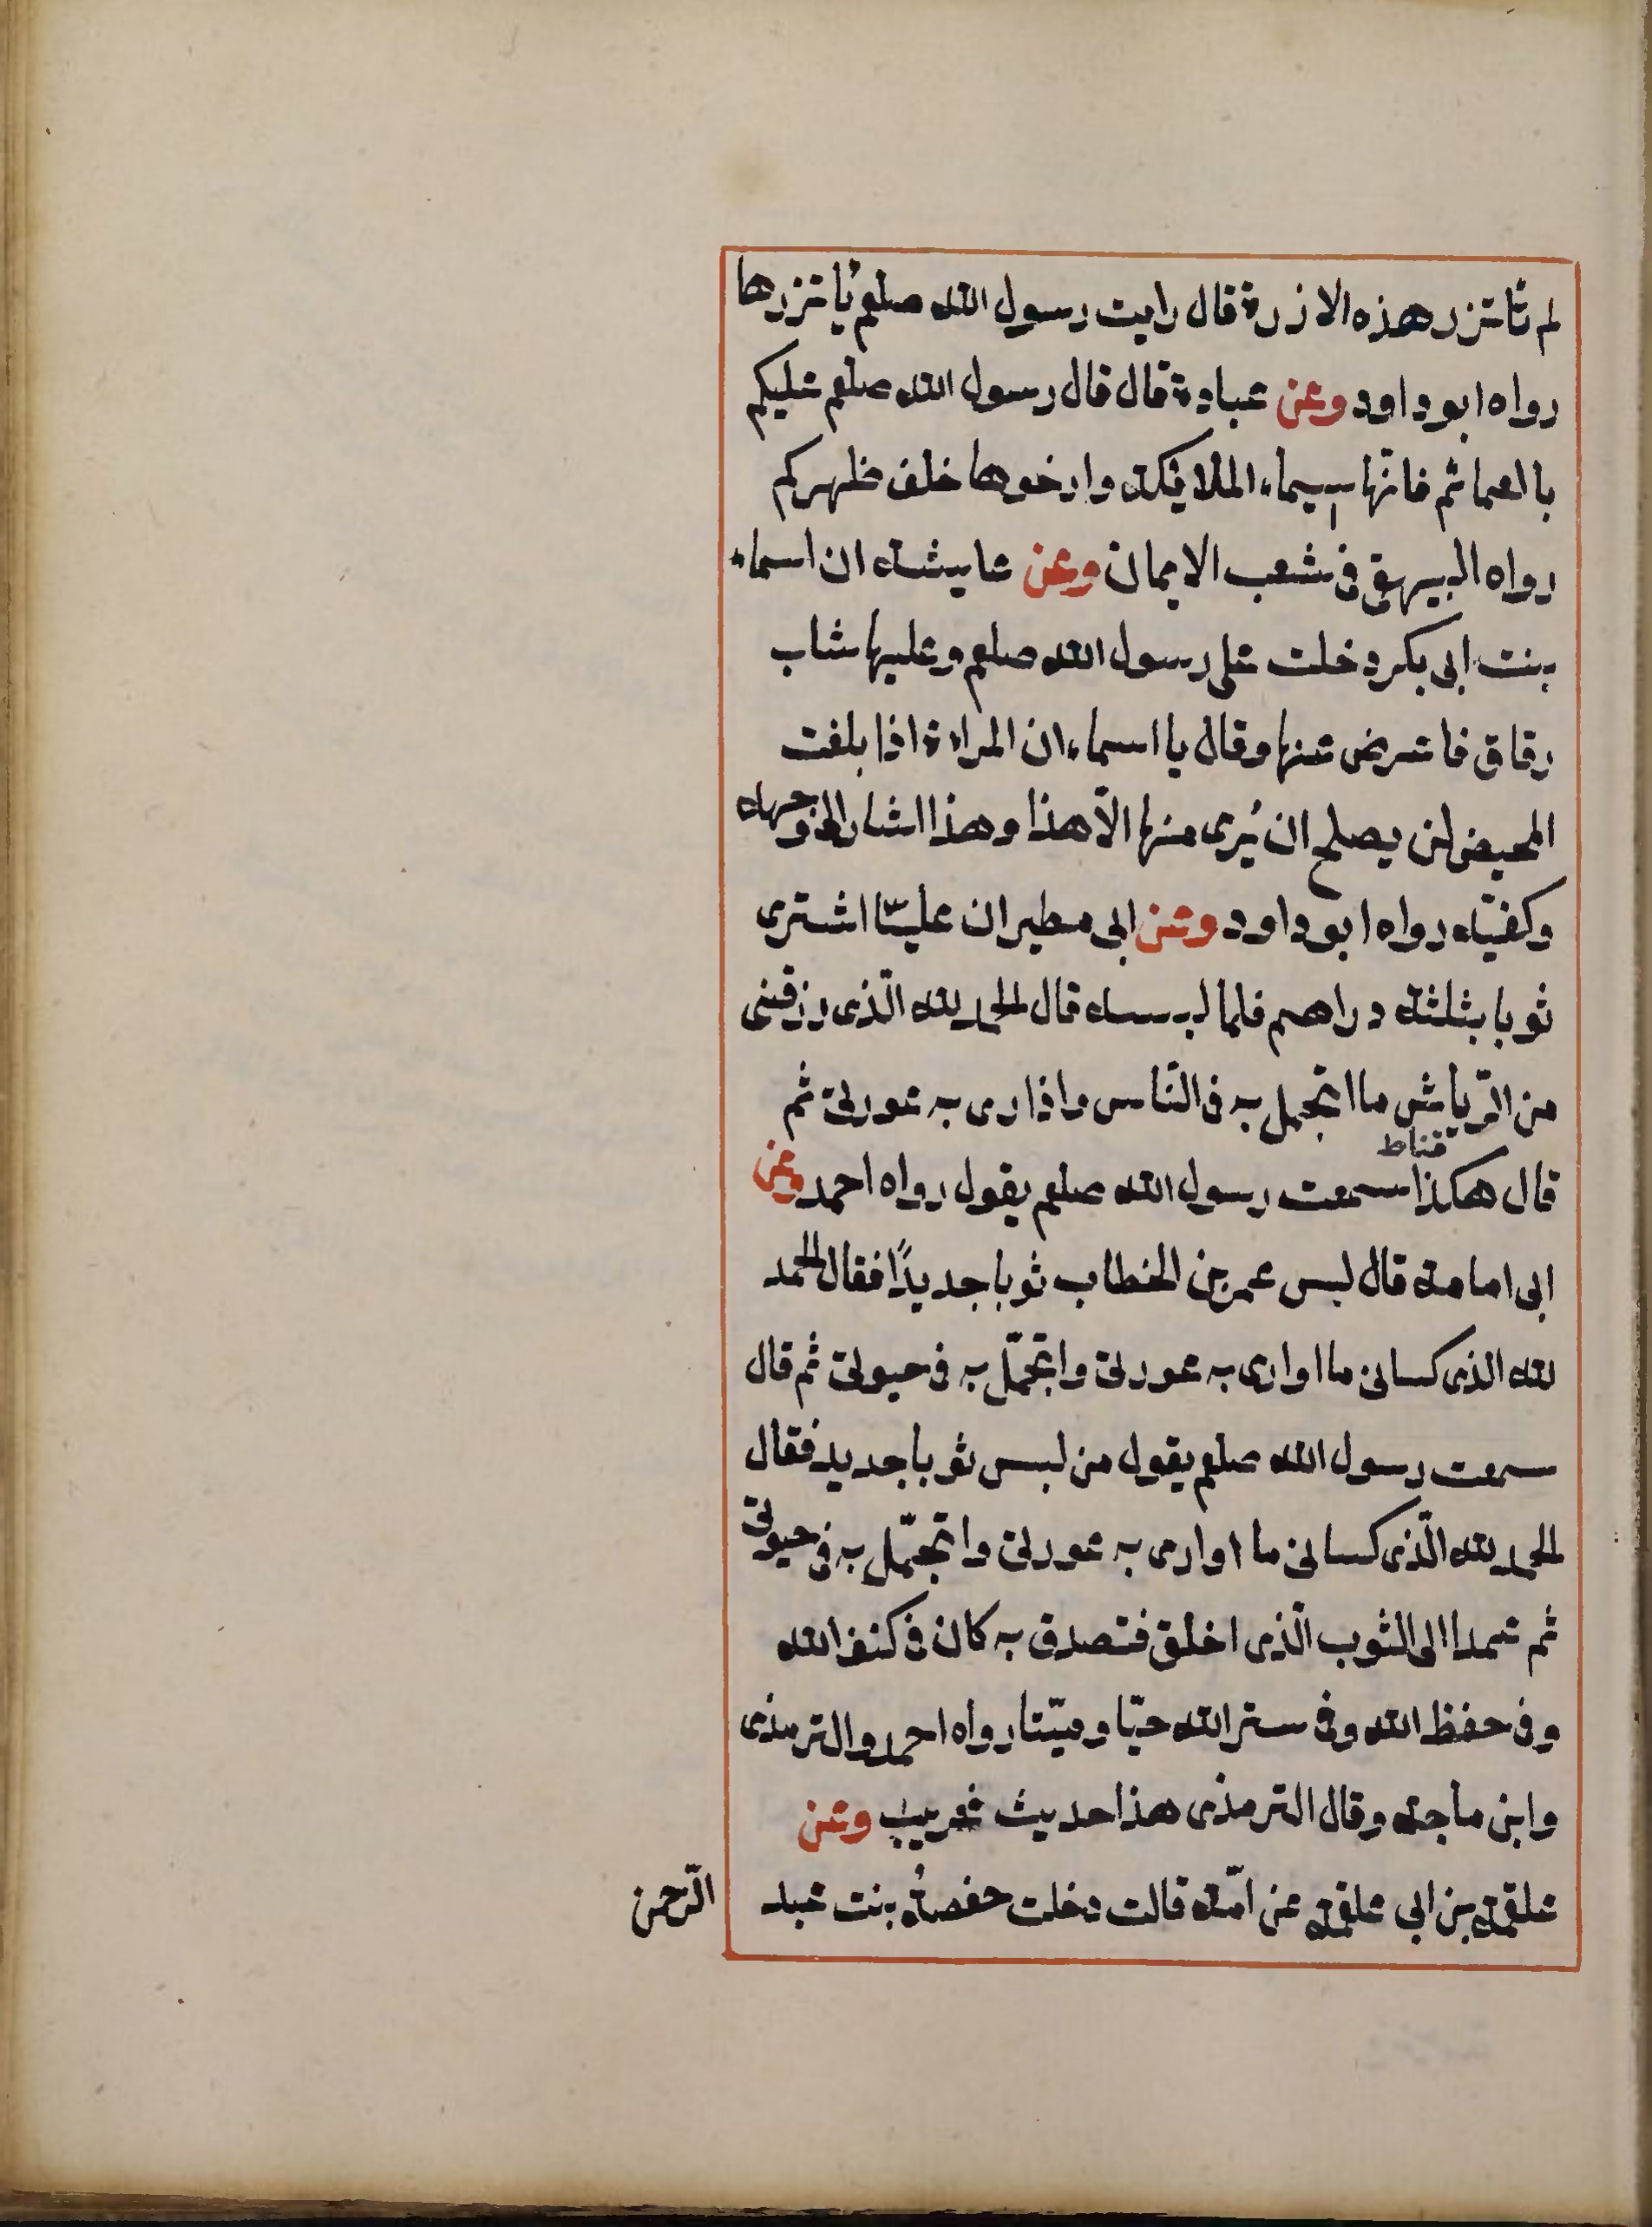 لم تٔاتزر هذه الازرة قال رايت رسول الله صلعم ئاتزرها
رواه ابو داود وعن عبادة قال قال رسول الله صلعم عليكم
باالعمائم فانّها سيماء الملائكة وارخوها خلف ظهركم
رواه البيهقى فى شعب الايمان وعن عايشة ان اسماء
بنت ابى بكر دخلت على رسول الله صلعم وعليها شاب
رقاق فاعرض عنها وقال يا اسماء ان المراءة اذا بلغت
المحيض لن يصلح ان يُرى منها الّا هذا وهذا اشار الى وجهه
وكفيّه رواه ابو داود وعن ابى مطير ان عليّا اشترى
ثوبا بثلثة دراهم فلما لبسه قال الحمد لله الّذى رزقنى
من الرّياش ما اتجمل به فى النّاس واذارى به عورتى ثم
قناط
قال هكذا سمعت رسول الله صلعم يقول رواه احمد وعن
ابى امامة قال لبس عمر بن الخطاب ثوبا جديدًا فقال الحمد
لله الذى كسانى ما اوارى به عورتى واتجمّل به فى حيوتى ثم قال
سمعت رسول الله صلعم يقول من لبس ثوبا جديد فقال
الحمد لله الّذى كسانى ما اوارى به عورتى واتجمّل به فى حيوتى
ثم عمدا الى الثوب الّذى اخلق فتصدق به كان فى كنف الله
وفى حفظ الله وفى ستر الله حيّا وميّتا رواه احمد والترمذى
وابن ماجة وقال الترمذى هذا حديث غريب وعن
علقمة بن ابى علقمة عن امّه قالت دخلت حفصةُ بنت عبد
الرّحمن